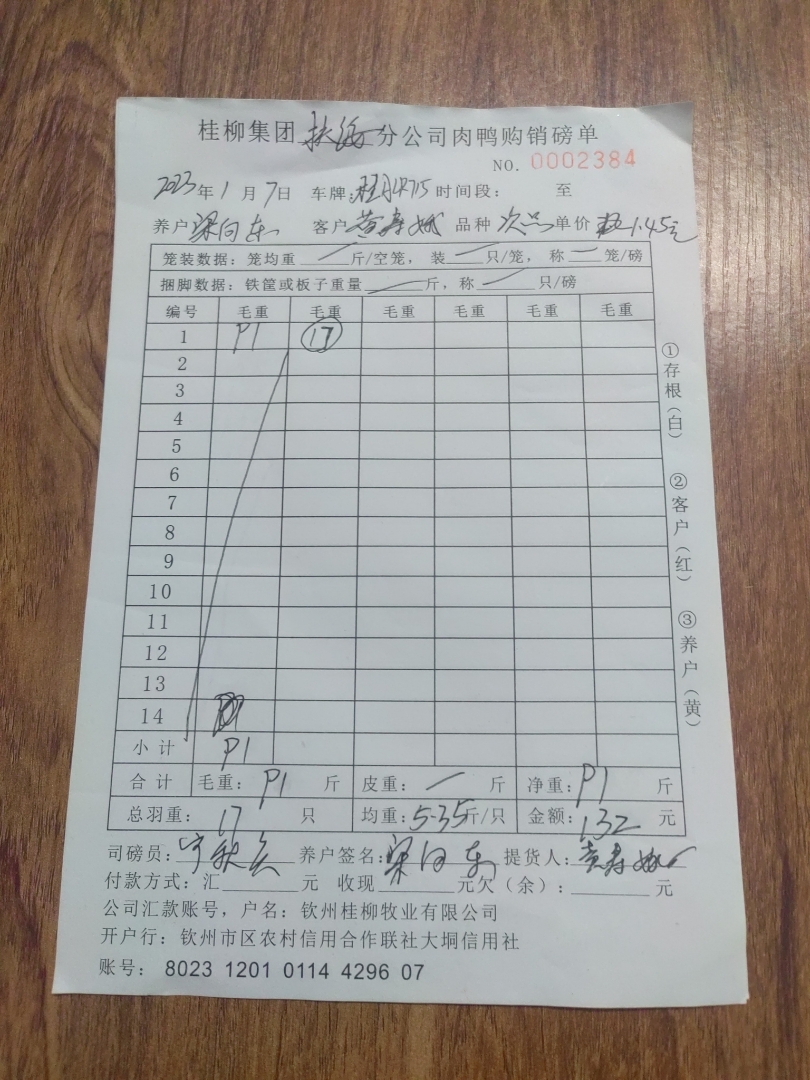 桂柳集团扶绥分公司肉鸭购销磅单
NO. 0002384
2023年1月7日 车牌: 时间段: 至
养户梁向东 客户黄寿 品种次品单价1.45元
笼装数据:笼均重一斤/空笼,装一只/笼,称一笼/磅
捆脚数据:铁筐或板子重量一斤,称一只/磅
编号 毛重 毛重 毛重 毛重 毛重 毛重
1 P1 17
2
3
4
5
6
7
8
9
10
11
12
13
14
小计 P1
合计 毛重:P1 斤 皮重:一 斤 净重:P1 斤
总羽重:17 只 均重:5.35斤/只 金额:132 元
司磅员: 养户签名:梁向东 提货人:黄寿
付款方式:汇 元 收现 元欠(余): 元
公司汇款账号,户名:钦州桂柳牧业有限公司
开户行:钦州市区农村信用合作联社大垌信用社
账号: 8023 1201 0114 4296 07
①存根(白) ②客户(红) ③养户(黄)